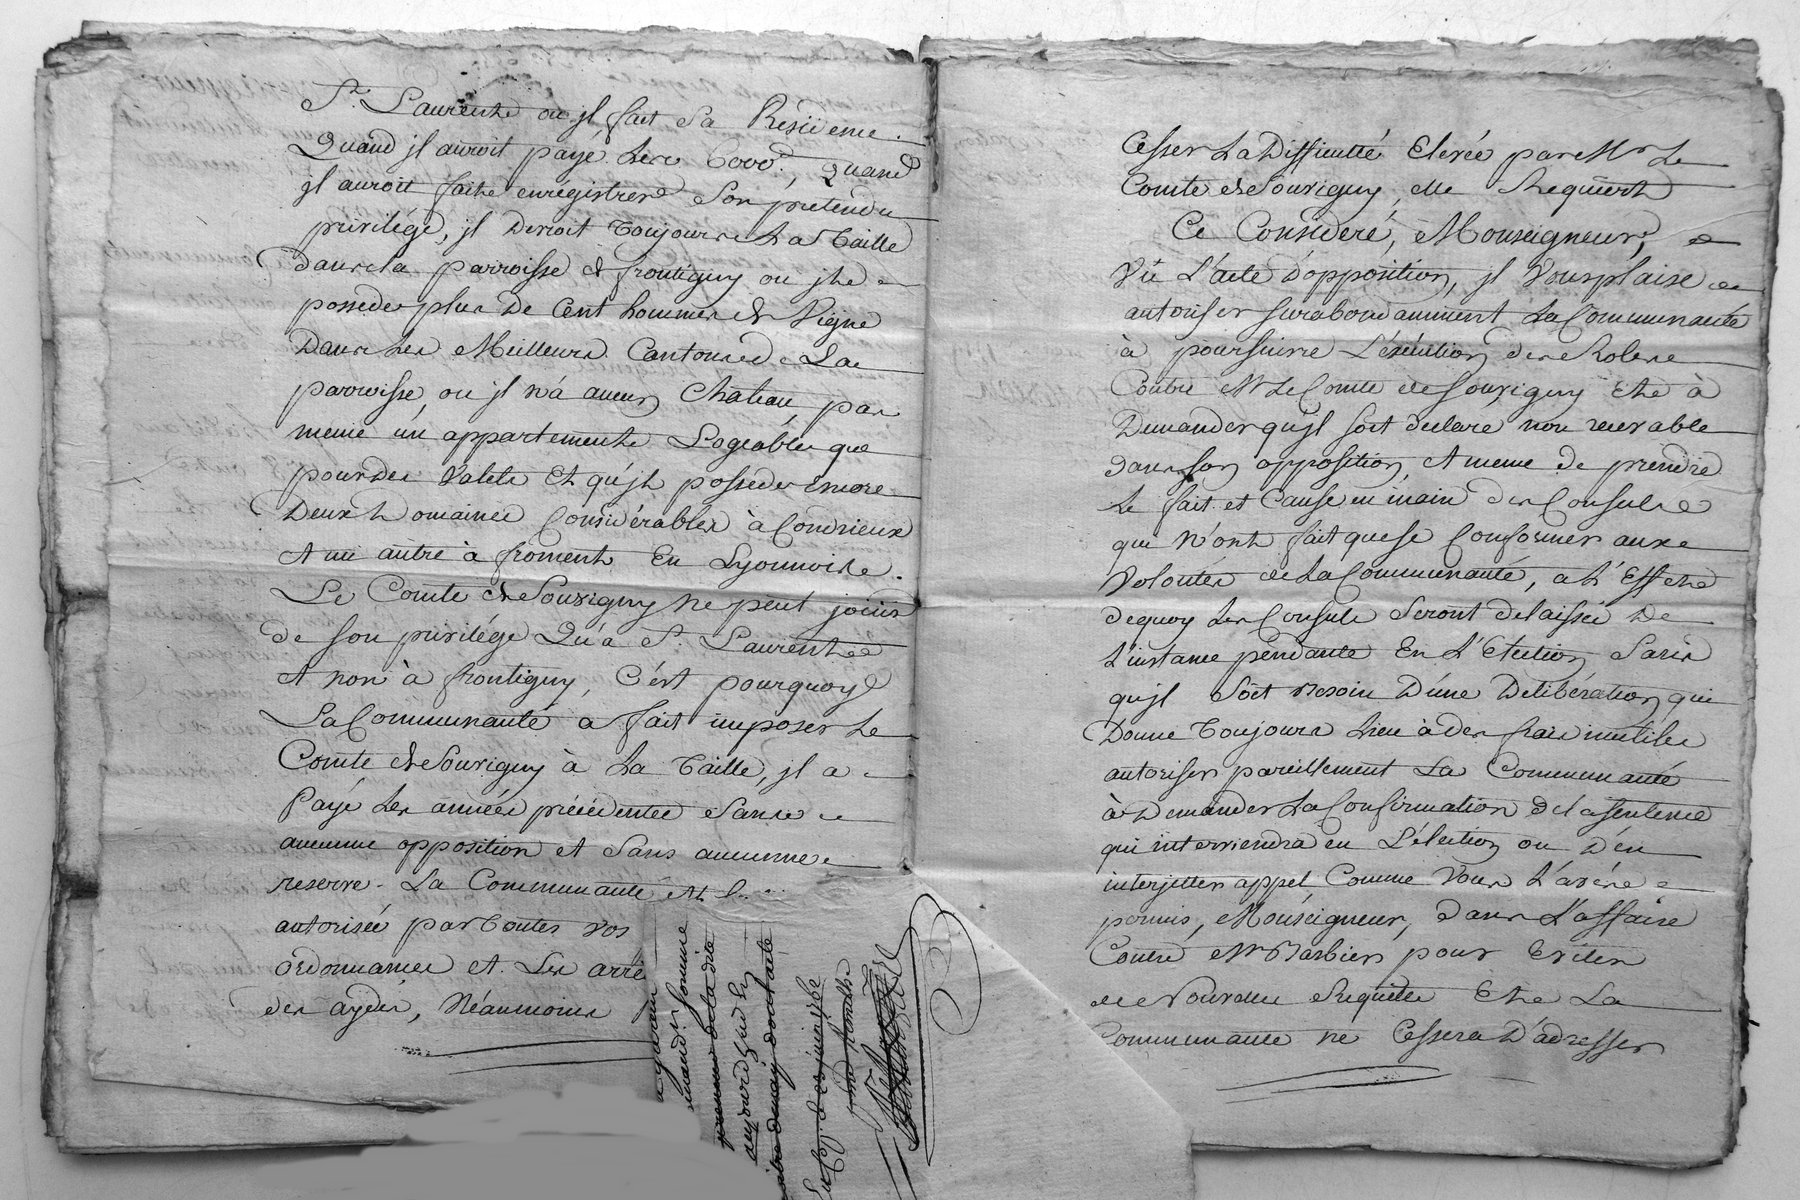 St. Laurent ou jl fait Sa Résidence.
Quand jl auroit payé Les 6000#, quand
jl auroit fait enregistrer Son prétendu
privilége, jl Devroit Toujours La Taille
dans la parroisse de frontigny ou jl
possede plus De Cent hommes de Vigne
Dans Les Meilleurs Cantons de La
parroisse, ou jl n'á aucun Chateau, pas
meme ún appartement Logeable que
pour des Valets Et qu'jl possede encore
Deux Domaines Considérables à Condrieux
et un aûtre à froment En Lyonnois.
Le Comte de Souvigny ne peut joüir
de Son privilége Qu'a St. Laurent
et non à frontigny, C'ést pourquoy
La Communauté a fait imposer Le
Comte de Souvigny à La Taille, jl a
Payé Les années précédentes Sans
aucunne opposition et Sans aucunne
reserve. La Communauté est
autorisée par Toutes vos
ordonnances et Les arrê
des aydes, Néanmoins
Cesser La Difficulté Elevée par Mr. Le
Comte de Souvigny, elle Requiert
Ce Consideré, Monseigneur,
Vû L'acte D'opposition, jl Vous plaise
autoriser surabondamment La Communauté
à poursuivre L'éxécution des Roles
Contre Mr. Le Comte de Souvigny Et à
Demander qu'jl soit declaré non recevable
dans son opposition, et meme de prendre
Le fait et Cause en main des Consuls
qui N'ont fait que se Conformer aux
Volontés de La Communauté, a L'Effet
dequoy Les Consuls Seront delaissés De
L'instance pendante En L'Election Sans
qu'jl Soit Besoin D'une Deliberation qui
Donne Toujours Lieu à des frais inutiles
autoriser pareillement La Communauté
à Demander La Confirmation de la sentence
qui interviendra en L'élection ou D'en
interjetter appel, Comme Vous L'avés
permis, Monseigneur, dans L'affaire
Contre Mr. Barbier, pour Eviter
de Nouvelles Requêtes Et La
Communauté ne Cessera D'adresser
somme
de la dite
aujourd'huy